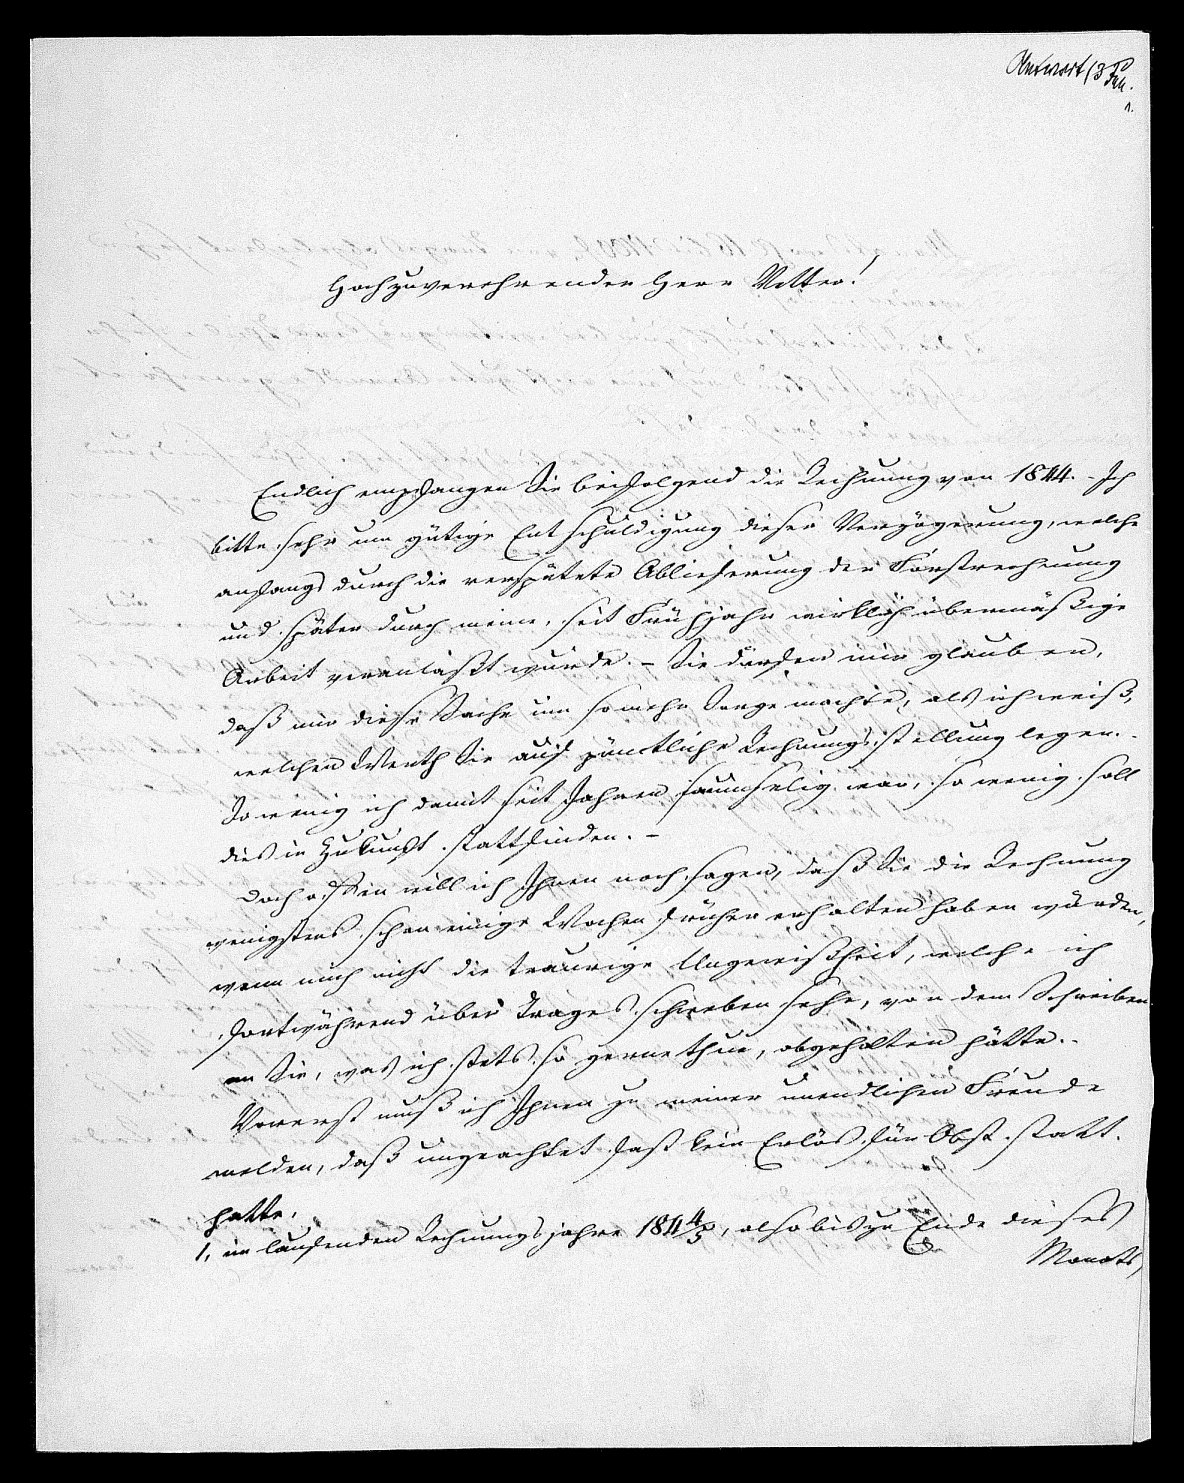 Antwort 13 Jan.
Hochzuverehrender Herr Ritter!
Endlich empfangen Sie beifolgend die Rechnung von 1844. - Ich
bitte sehr um gütige Entschuldigung dieser Verzögerung, welche
anfangs durch die verspätete Ablieferung der Forstrechnung
und später durch meine, seit Frühjahr wirklich übermäßige
Arbeit veranlaßt wurde. - Sie dürfen mir glauben,
daß mir diese Sache um so mehr Sorge machte, als ich weiß,
welchen Werth Sie auf pünctliche Rechnungsstellung legen. -
So wenig ich damit seit Jahren saumselig war, so wenig soll
dies in Zukunft stattfinden. -
Doch offen will ich Ihnen noch sagen, daß Sie die Rechnung
wenigstens schon einige Wochen früher erhalten haben würden,
wenn mich nicht die traurige Ungewißheit, welche ich
fortwährend über Trages schweben sehe, von dem Schreiben
an Sie, was ich stets so gerne thue, abgehalten hätte. -
Vorerst muß ich Ihnen zu meiner unendlichen Freude
melden, daß ungeachtet fast kein Erlös für Obst statt
hatte,
1, im laufenden Rechnungsjahre 1844/5, also bis zu Ende dieses
Monats,